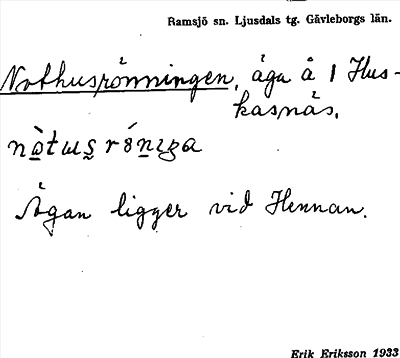 Ramsjö sn. Ljusdals tg. Gävleborgs län.
Nothusrönningen, äga å 1 Hus-
kasnås.
Ägan ligger vid Hennan.
Erik Eriksson 1933